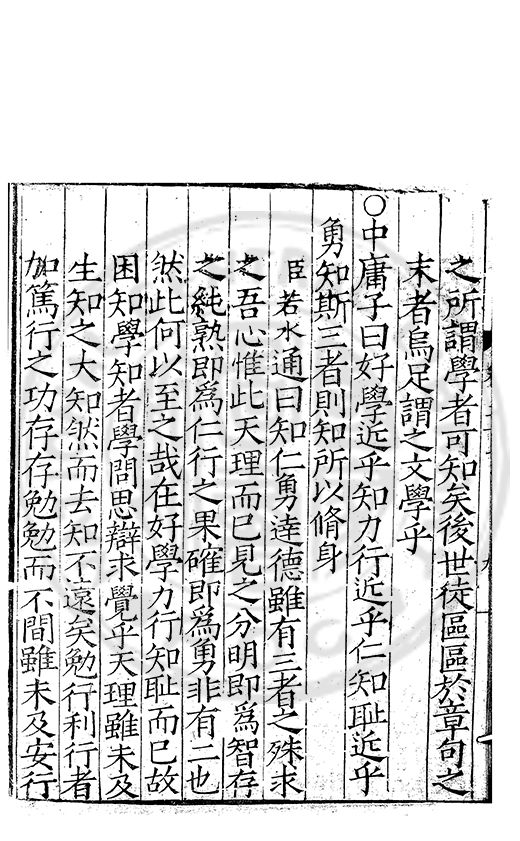 之所謂學者可知矣後世徒區區於章句之
末者烏足謂之文學乎
○中庸子曰好學近乎知力行近乎仁知耻近乎
勇知斯三者則知所以脩身
臣若水通曰知仁勇達德雖有三者之殊求
之吾心惟此天理而已見之分明即爲智存
之純熟即爲仁行之果確即爲勇非有二也
然此何以至之哉在好學力行知耻而已故
困知學知者學問思辯求覺乎天理雖未及
生知之大知然而去知不遠矣勉行利行者
加篤行之功存存勉勉而不間雖未及安行